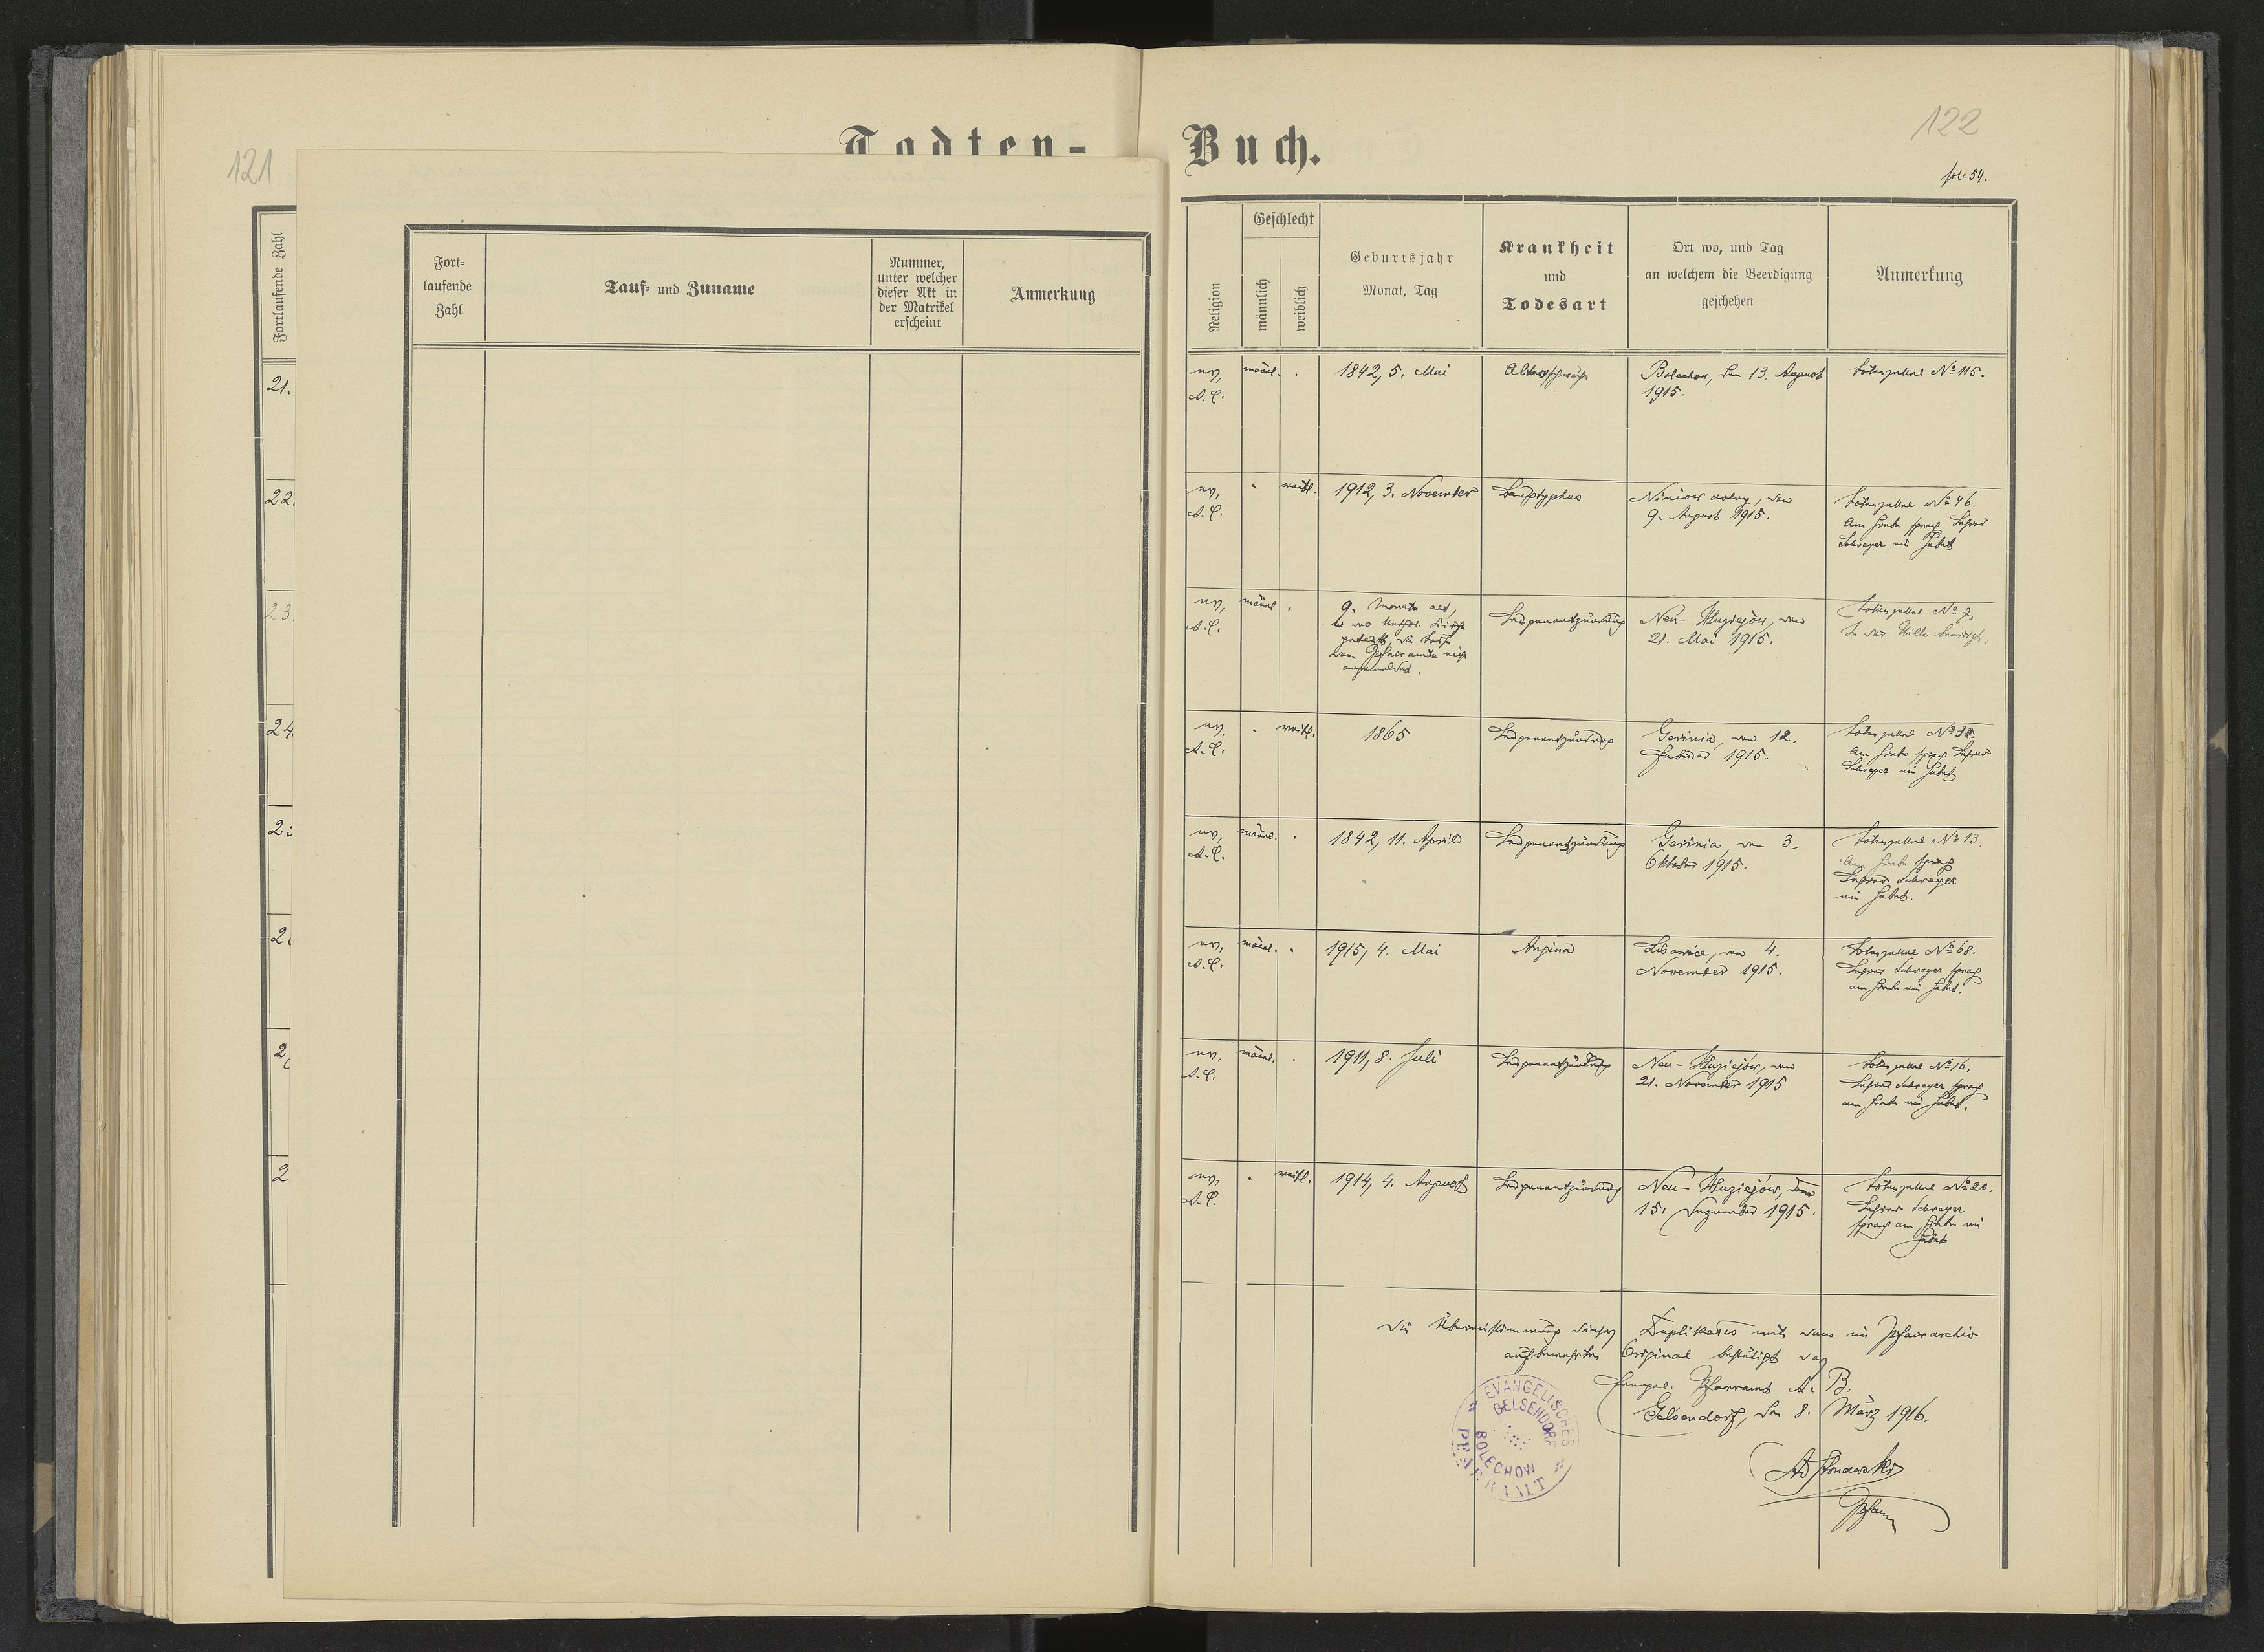 Todten-
Buch.
121
122
fol. 54.
Fortlaufende Zahl
21.
22.
23
24
2
2
2
2
Fort-
laufende
Zahl
Tauf- und Zuname
Nummer,
unter welcher
dieser Akt in
der Matrikel
erscheint
Anmerkung
Religion
Geschlecht
männlich
weiblich
Geburtsjahr
Monat, Tag
Krankheit
und
Todesart
Ort wo, und Tag
an welchem die Beerdigung
geschehen
Anmerkung
ev. A. C.
männl.
1842, 5. Mai
Altersschwäche
Bolechow, den 13. August
1915.
Totenzettel № 115.
ev. A. C.
weibl.
1912, 3. November
Bauchtyphus
Niniow dolny, den
9. August 1915.
Totenzettel № 46.
Am Grabe sprach Lehrer
Schreyer ein Gebet
ev. A. C.
männl
9. Monate alt,
in der kathol. Kirche
getauft, die Taufe
dem Pfarramte nicht
angemeldet.
Lungenentzündung
Neu-Huziejów, den
21. Mai 1915.
Totenzettel № 7
In der Stille beerdigt.
ev. A. C.
weibl.
1865
Lungenentzündung
Gerinia, den 12.
Februar 1915.
Totenzettel №
Am Grabe sprach Lehrer
Schreyer ein Gebet
ev. A. C.
männl.
1842, 11. April
Lungenentzündung
Gerinia, den 3.
Oktober 1915.
Totenzettel № 13.
Am Grabe sprach
Lehrer Schreyer
ein Gebet.
ev. A. C.
männl.
1915, 4. Mai
Angina
Lisowice, den 4.
November 1915.
Totenzettel № 68.
Lehrer Schreyer sprach
am Grabe ein Gebet.
ev. A. C.
männl.
1911, 8. Juli
Lungenentzündung
Neu-Huziejów, den
21. November 1915
Totenzettel № 16.
Lehrer Schreyer sprach
am Grabe ein Gebet.
ev. A. C.
weibl.
1914, 4. August
Lungenentzündung
Neu-Huziejów, den
15. Dezember 1915.
Totenzettel № 20.
Lehrer Schreyer
sprach am Grabe ein
Gebet
Die Übereinstimmung dieses Duplikates mit dem im Pfarrarchiv
aufbewahrten Original bestätigt das
Evangel. Pfarramt A. B.
Gelsendorf, den 8. März 1916.
Pfarrer
EVANGELISCHES
PFARRAMT
GELSENDORF
BOLECHOW